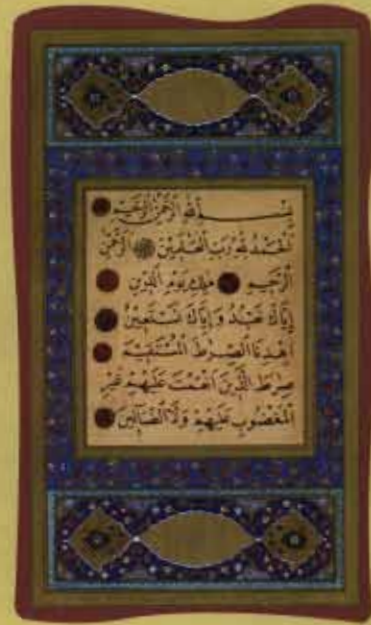 بسم الله الرحمن الرحيم
الحمد لله رب العلمين الرحمن
الرحيم ملك يوم الدين
إياك نعبد وإياك نستعين
اهدنا الصرط المستقيم
صرط الذين انعمت عليهم غير
المغضوب عليهم ولا الضالين